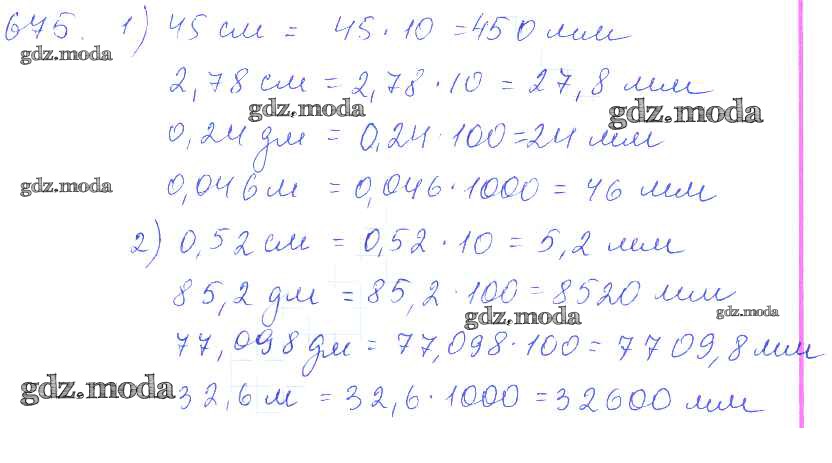 675. 1) 45 см = 45 · 10 = 450 мм
gdz.moda
2,78 см = 2,78 · 10 = 27,8 мм
gdz.moda gdz.moda
0,24 дм = 0,24 · 100 = 24 мм
gdz.moda 0,046 м = 0,046 · 1000 = 46 мм
2) 0,52 см = 0,52 · 10 = 5,2 мм
85,2 дм = 85,2 · 100 = 8520 мм
gdz.moda gdz.moda
77,098 дм = 77,098 · 100 = 7709,8 мм
gdz.moda 32,6 м = 32,6 · 1000 = 32600 мм